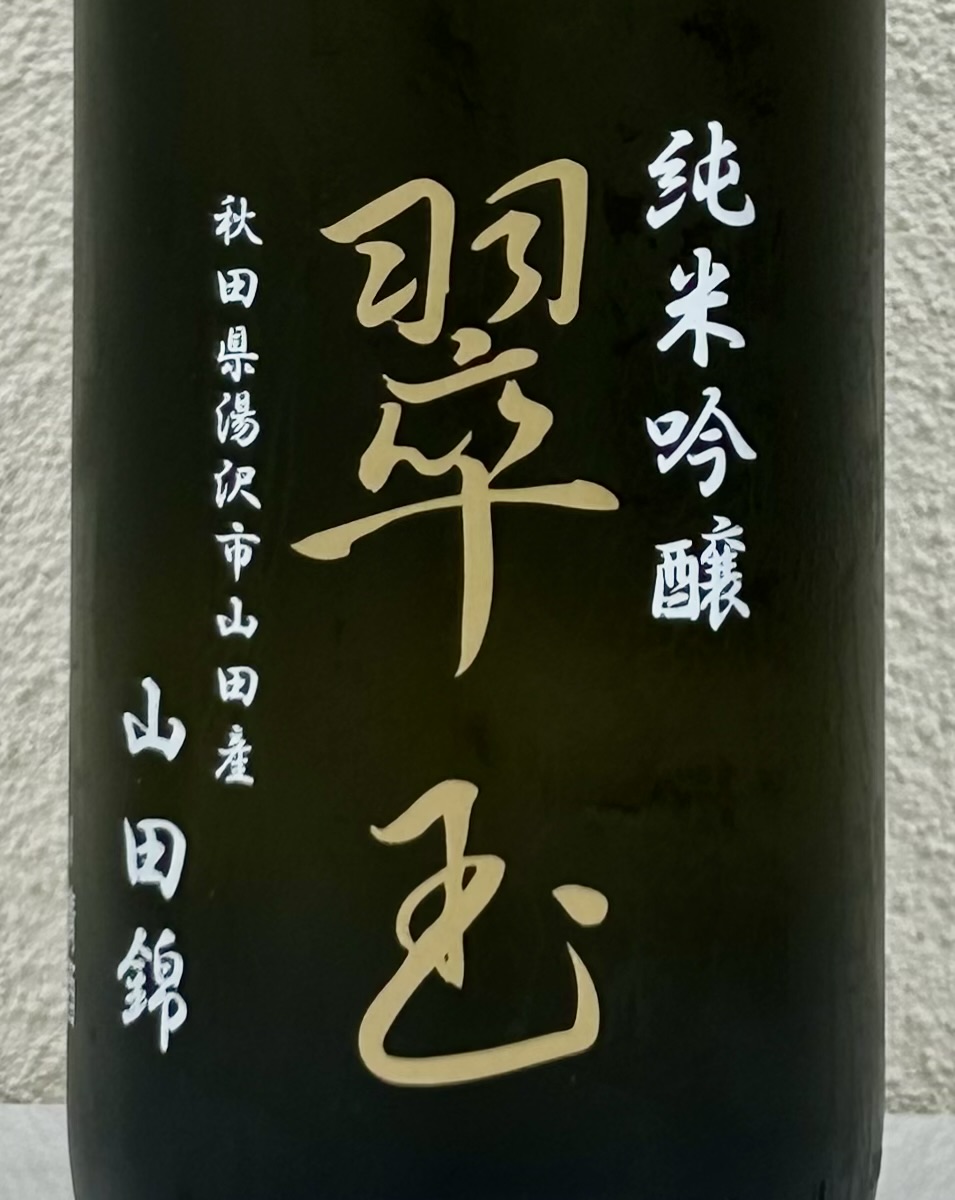 純米吟醸
翠玉
秋田県湯沢市山田産
山田錦